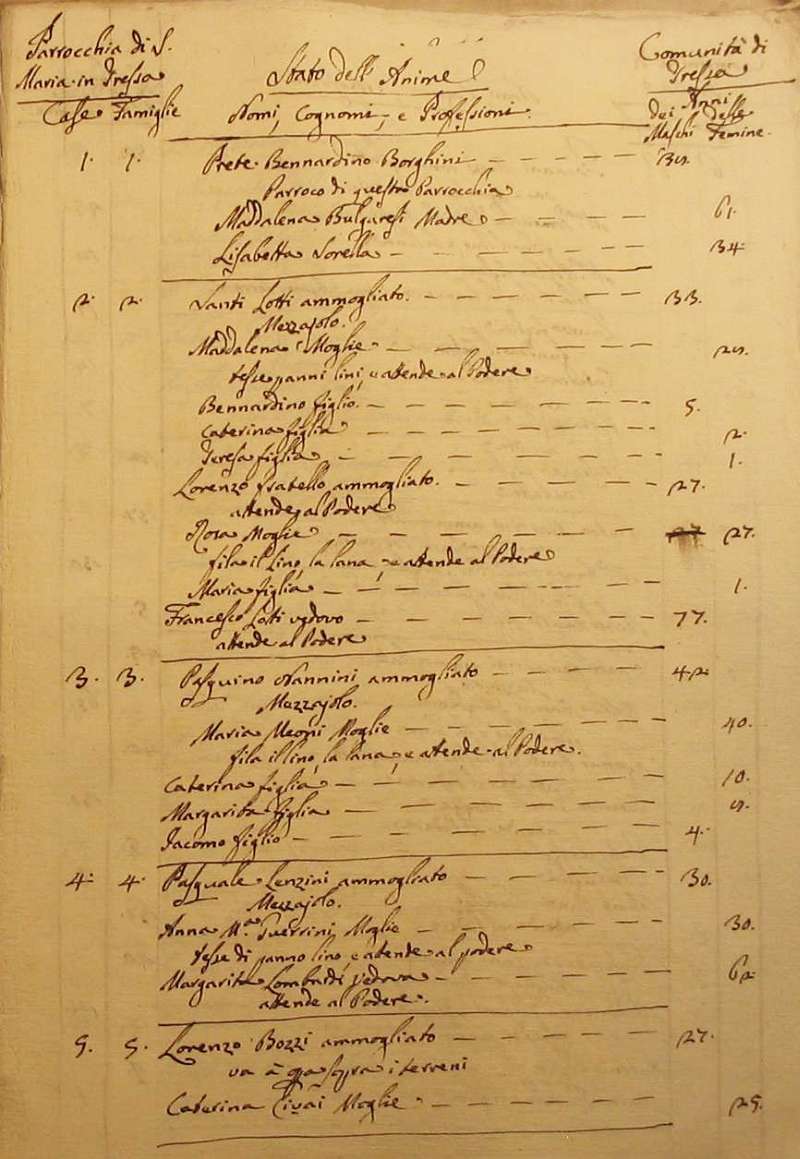 Parrocchia di S.
Maria in Tressa
Stato dell' Anime
Comunità di
Tressa
Case Famiglie
Nomi, Cognomi, e Professioni
Anni
dei Maschi delle Femine
1. 1. Prete Bernardino Borghini
Parroco di questa Parrocchia
Maddalena Bulgaresi Madre 61.
Lisabetta Sorella 34
2. 2. Santi Lotti ammogliato. 33.
Mezzajolo.
Maddalena Moglie
tesse panni lini, e attende al Podere
Bennardino figlio. 5.
Caterina figlia 2.
Teresa figlia 1.
Lorenzo fratello ammogliato. 27.
attende al Podere
Rosa Moglie 27 27.
fila il lino, la lana, e attende al Podere
Maria figlia 1.
Francesco Lotti vedovo 77.
attende al Podere
3. 3. Pasquino Nannini ammogliato 42
Mezzajolo.
Maria Meoni Moglie 40.
fila il lino, la lana, e attende al Podere.
Caterina figlia 10.
Margarita figlia
Jacomo figlio 4.
4. 4. Pasquale Lenzini ammogliato 30.
Mezzajolo.
Anna M.a Guerrini Moglie 30.
tesse di panno lino, e attende al podere
Margarita Lombardi Vedova 62
attende al Podere.
5. 5. Lorenzo Bozzi ammogliato 27.
va à opra sopra i terreni
Caterina Moglie 25.